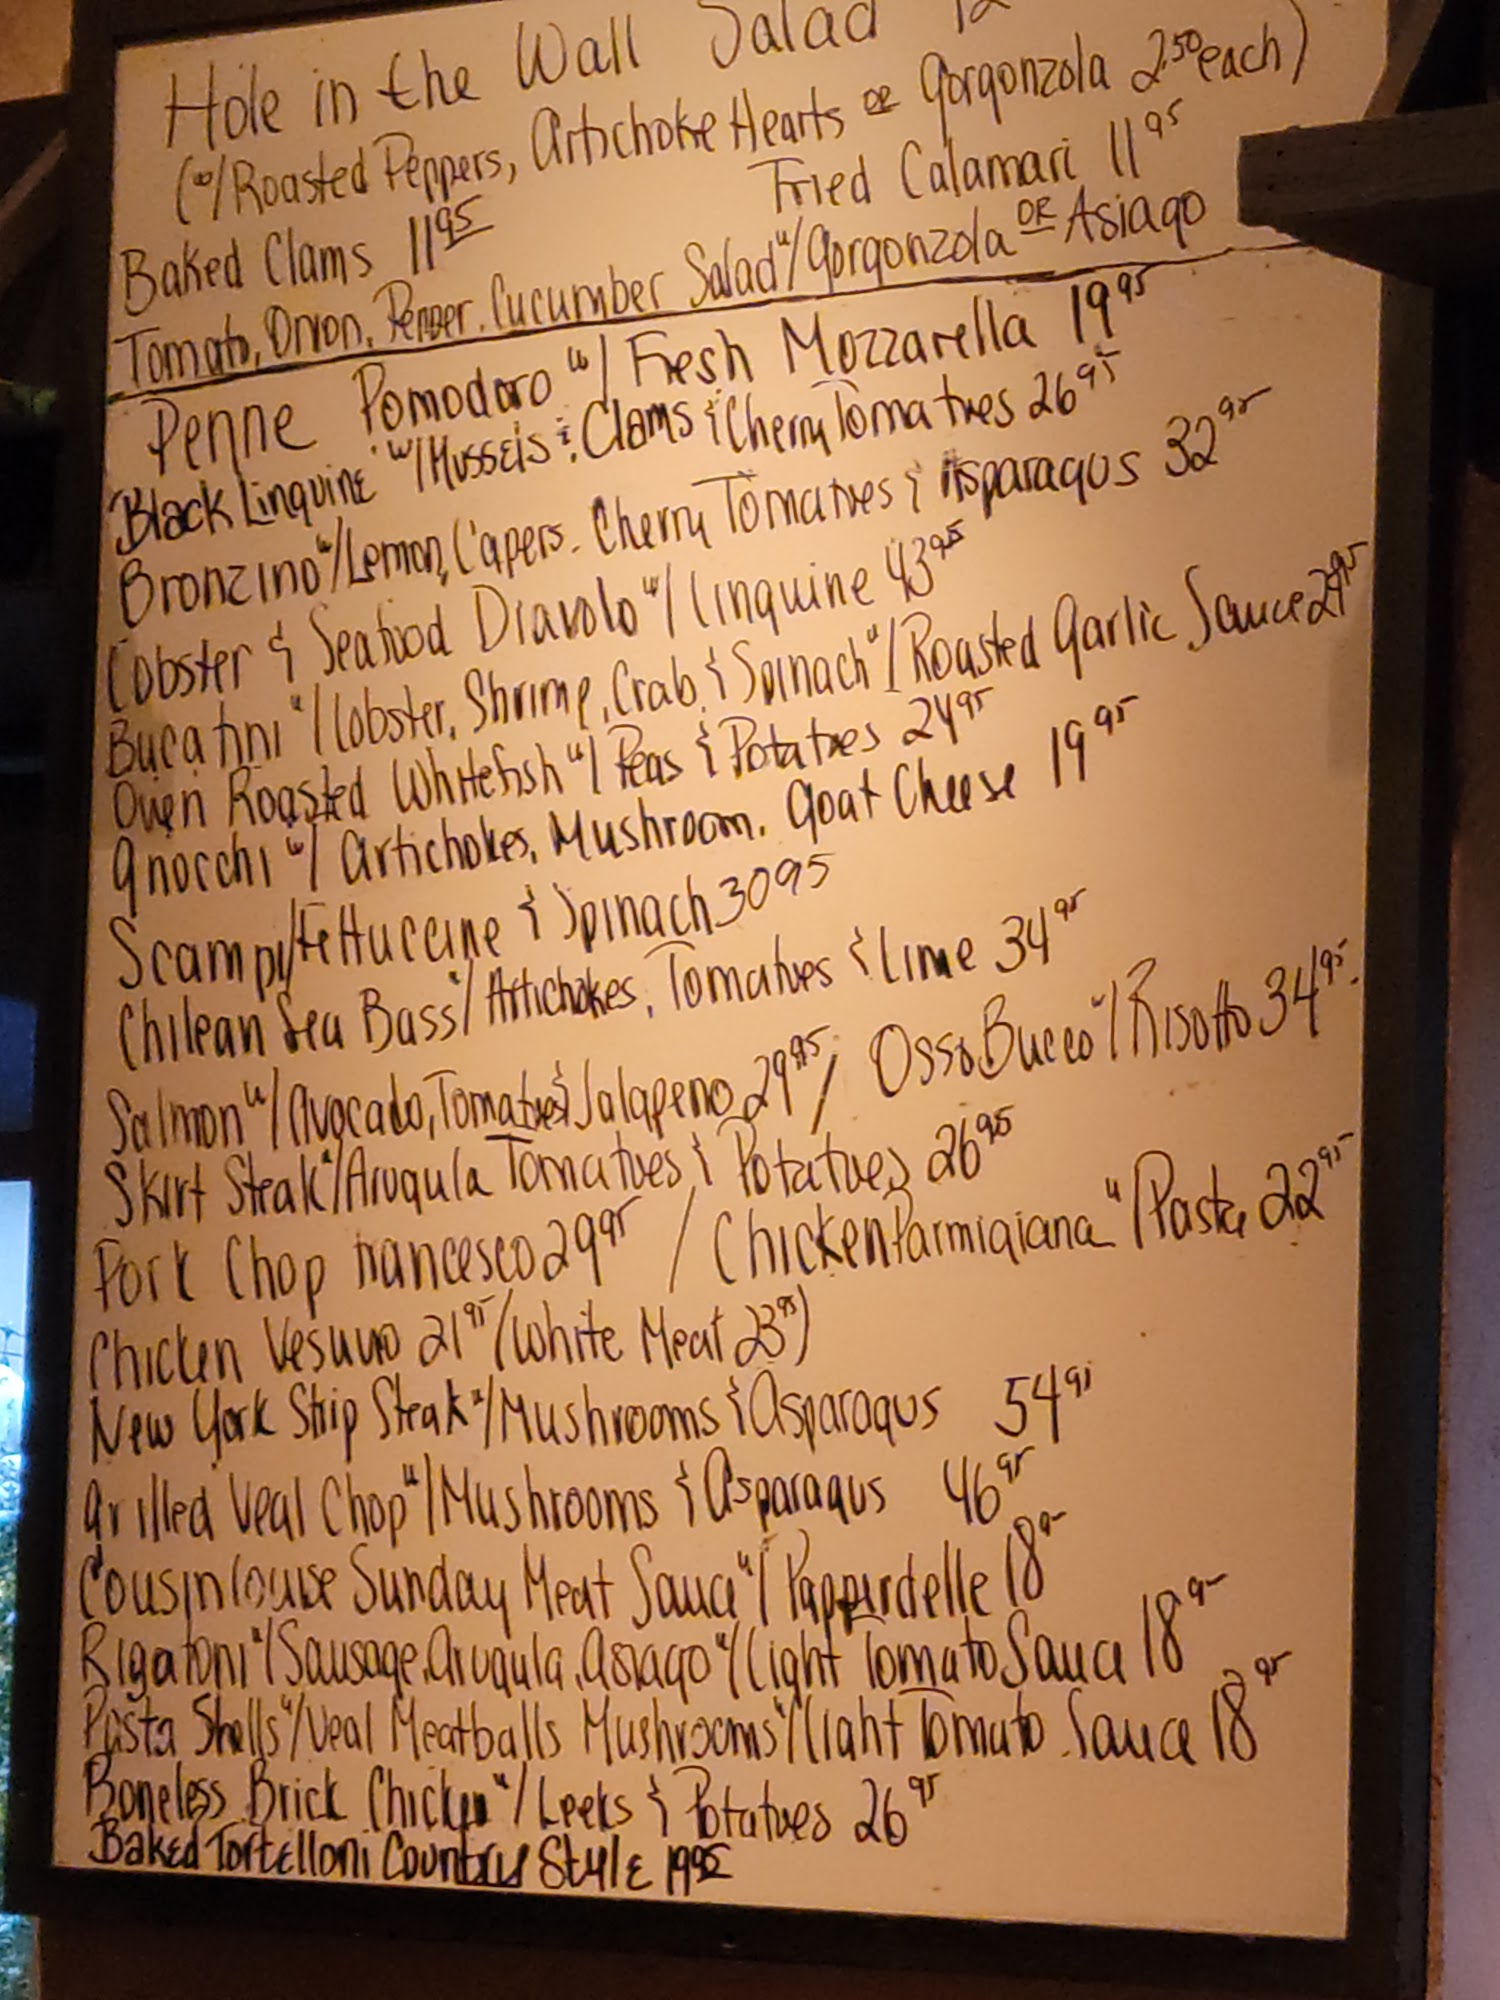 Hole in the Wall Salad 12
(w/Roasted Peppers, Artichoke Hearts OR Gorgonzola 2.50 each)
Baked Clams 11 95 Fried Calamari 11 95
Tomato, Onion, Pepper, Cucumber Salad w/Gorgonzola OR Asiago
Penne Pomodoro w/ Fresh Mozzarella 19 95
Black Linguine w/Mussels & Clams & Cherry Tomatoes 26 95
Bronzino w/Lemon, Capers, Cherry Tomatoes & Asparagus 32 95
Lobster & Seafood Diavolo w/ Linguine 43 95
Bucatini w/ Lobster, Shrimp, Crab, & Spinach w/ Roasted Garlic Sauce 29 95
Oven Roasted Whitefish w/ Peas & Potatoes 24 95
Gnocchi w/ Artichokes, Mushroom, Goat Cheese 19 95
Scampi/Fettuccine & Spinach 30 95
Chilean Sea Bass w/ Artichokes, Tomatoes & Lime 34 95
Salmon w/ Avocado, Tomatoes & Jalapeno 29 95 / Osso Bucco w/ Risotto 34 95
Skirt Steak w/Arugula Tomatoes & Potatoes 26 95
Pork Chop Francesco 29 95 / Chicken Parmigiana w/Pasta 22 95
Chicken Vesuvio 21 95 (White Meat 23 95)
New York Strip Steak w/Mushrooms & Asparagus 54 95
Grilled Veal Chop w/Mushrooms & Asparagus 46 95
Cousin Louise Sunday Meat Sauce w/ Papperdelle 18 95
Rigatoni w/Sausage, Arugula, Asiago w/Light Tomato Sauce 18 95
Pasta Shells w/Veal Meatballs Mushrooms w/Light Tomato Sauce 18 95
Boneless Brick Chicken w/Leeks & Potatoes 26 95
Baked Tortelloni Country Style 19 95